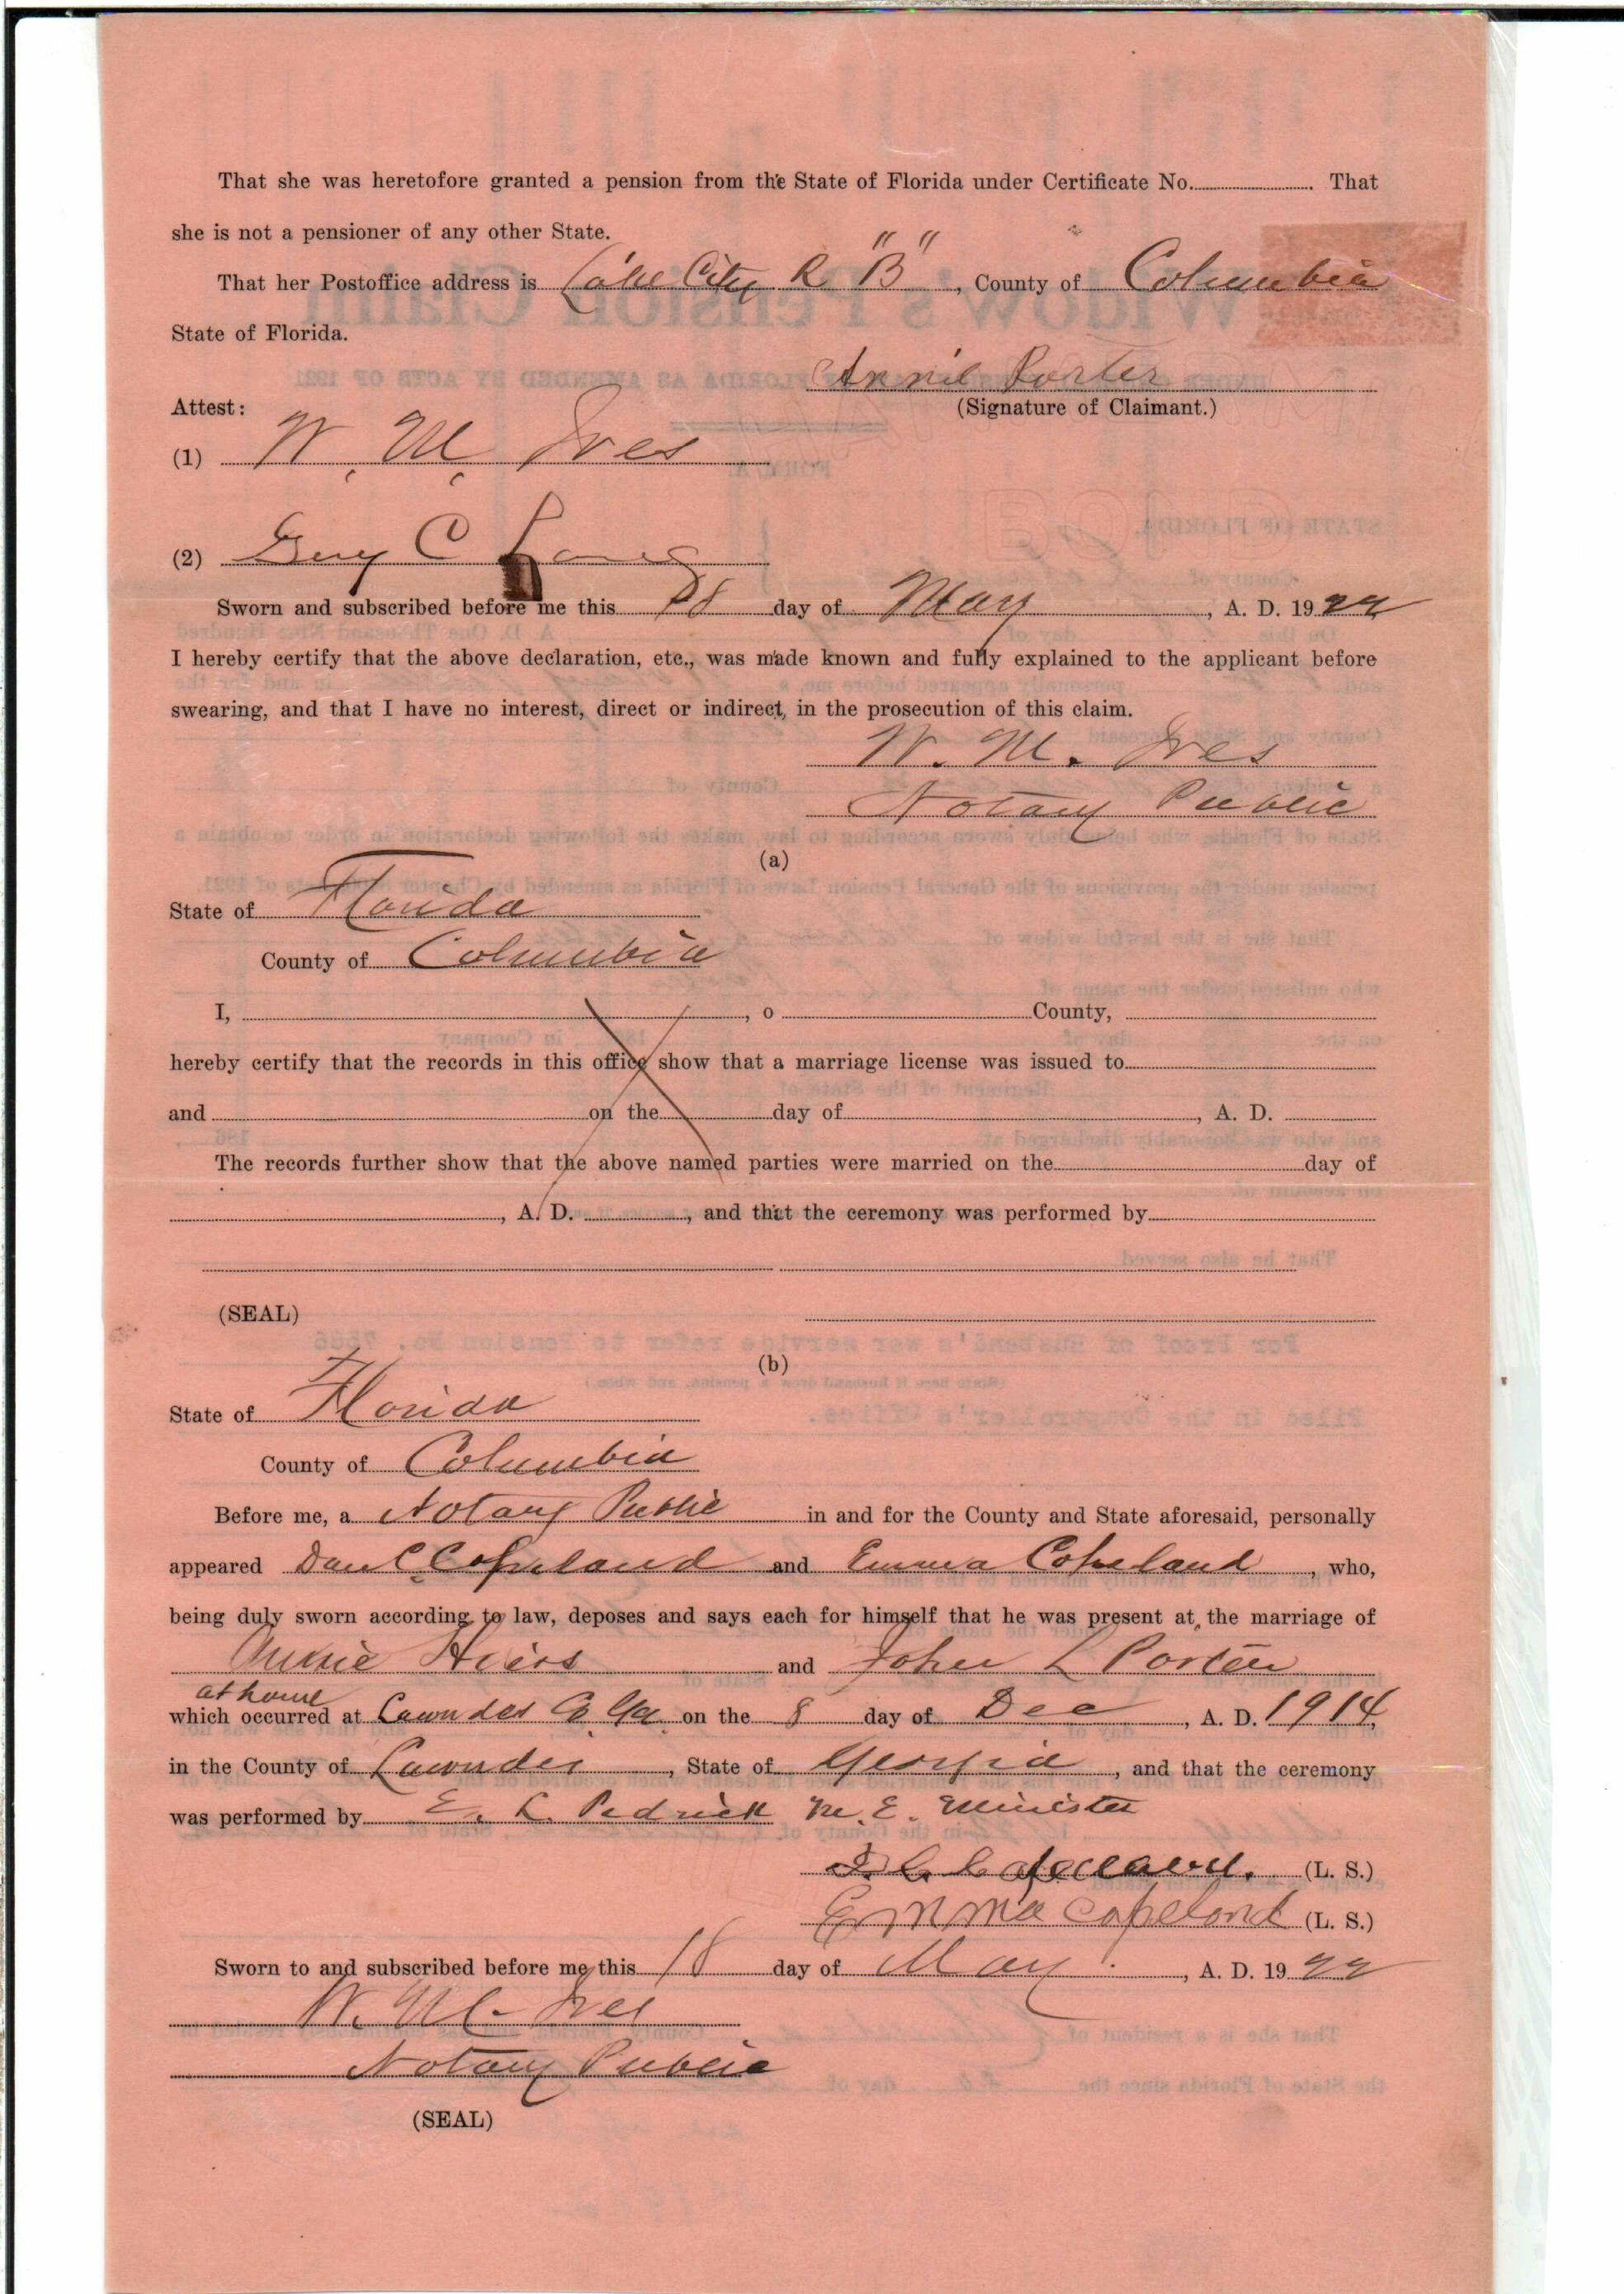 That she was heretofore granted a pension from the State of Florida under Certificate No. ............ . That
she is not a pensioner of any other State.
That her Postoffice address is Lake City R "B", County of Columbia
State of Florida.
Annie Porter
Attest:
(Signature of Claimant.)
(1) W. M. Ives
(2) Guy C
Sworn and subscribed before me this 18 day of May, A. D. 1922
I hereby certify that the above declaration, etc., was made known and fully explained to the applicant before
swearing, and that I have no interest, direct or indirect, in the prosecution of this claim.
W. M. Ives
Notary Public
(a)
State of Florida
County of Columbia
I, ............, o ............ County, ............
hereby certify that the records in this office show that a marriage license was issued to ............
and ............ on the ............ day of ............, A. D. ............
The records further show that the above named parties were married on the ............ day of
............, A. D. ............, and that the ceremony was performed by ............
(SEAL)
(b)
State of Florida
County of Columbia
Before me, a Notary Public in and for the County and State aforesaid, personally
appeared Dan C. Copeland and Emma Copeland, who,
being duly sworn according to law, deposes and says each for himself that he was present at the marriage of
Annie Hiers and John L Porter
at home
which occurred at Lowndes Co. Ga. on the 8 day of Dec, A. D. 1914,
in the County of Lowndes, State of Georgia, and that the ceremony
was performed by E. L. Pedrick M. E. Minister
D. C. Copeland. (L. S.)
Emma Copeland (L. S.)
Sworn to and subscribed before me this 18 day of May, A. D. 1922
W. M. Ives
Notary Public
(SEAL)